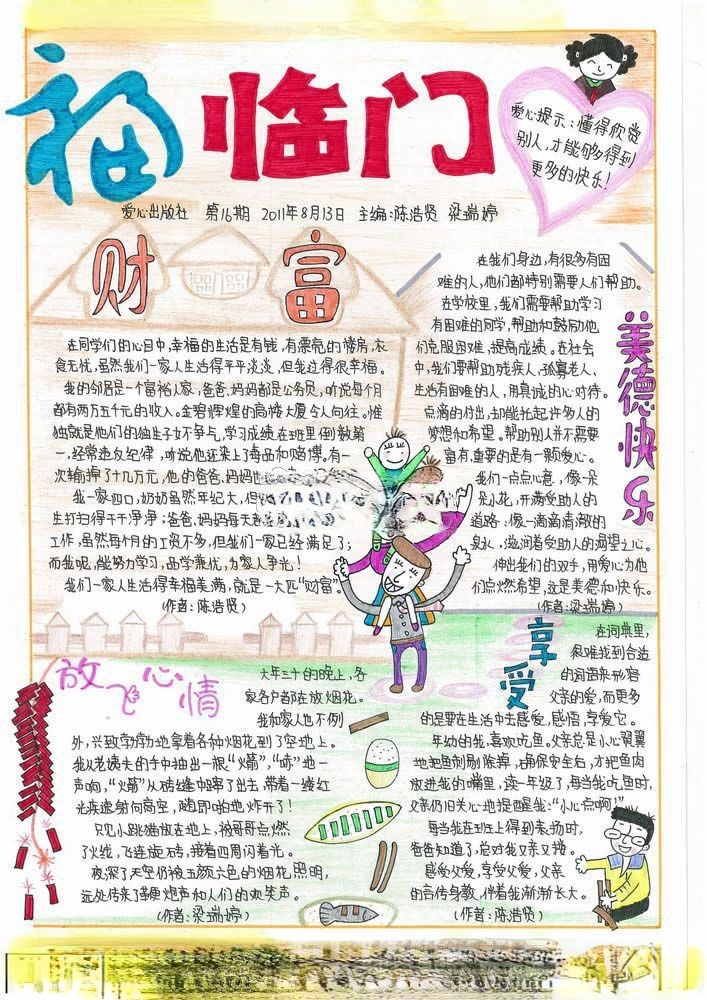 福临门
爱心提示:懂得欣赏
别人,才能够多得到
更多的快乐!
爱心出版社 第16期 2011年8月13日 主编:陈浩贤 梁瑞婷
财富
在同学们的心目中,幸福的生活是有钱,有漂亮的楼房,衣
食无忧,虽然我们一家人生活得平平淡淡,但我过得很幸福。
我的邻居是一个富裕人家,爸爸、妈妈都是公务员,听说每个月
都有两万五千元的收入。金碧辉煌的高楼大厦令人向往。惟
独就是他们的独生子女不争气,学习成绩在班里倒数第
一,经常违反纪律,听说他还染上了毒品和赌博。有一
次输掉了十几万元,他的爸爸、妈妈
我一家四口,奶奶虽然年纪大,但
生打扫得干干净净;爸爸、妈妈每天
工作,虽然每个月的工资不多,但我们一家已经满足了;
而我呢,能努力学习,品学兼优,为家人争光!
我们一家人生活得幸福美满,就是一大匹“财富”。
(作者:陈浩贤)
美德快乐
在我们身边,有很多有困
难的人,他们都特别需要人们帮助。
在学校里,我们需要帮助学习
有困难的同学,帮助和鼓励他
们克服困难,提高成绩。在社会
中,我们要帮助残疾人、孤寡老人、
生活有困难的人,用真诚的心对待。
点滴的付出,却能托起许多人的
梦想和希望。帮助别人并不需要
富有,重要的是有一颗爱心。
我们一点点心意,像一朵
朵小花,开满受助人的
道路;像一滴滴清澈的
泉水,滋润着受助人的渴望之心。
伸出我们的双手,用爱心为他
们点燃希望,这是美德和快乐。
(作者:梁瑞婷)
放飞心情
大年三十的晚上,各
家各户都在放烟花。
我和家人也不例
外,兴致勃勃地拿着各种烟花到了空地上。
我从老姨夫的手中抽出一根“火箭”,“咻”地一
声响,“火箭”从砖缝中蹿了出去,带着一缕红
光疾速射向高空,随即啪地炸开了!
只见小跳猫放在地上,被哥哥点燃
了火线,飞速旋转,接着四周闪着光。
夜深了,天空仍被五颜六色的烟花照明,
远处传来了鞭炮声和人们的欢笑声。
(作者:梁瑞婷)
享受
在词典里,
很难找到合适
的词语来形容
父亲的爱,而更多
的是要在生活中去感爱,感悟,享爱它。
年幼的我,喜欢吃鱼。父亲总是小心翼翼
地把鱼刺剔除掉,确保安全后,才把鱼肉
放进我的嘴里,读一年级了,每当我吃鱼时,
父亲仍旧关心地提醒我:“小心点啊!”
每当我在班上得到表扬时,
爸爸知道了,总对我又亲又搂。
感受父爱,享受父爱,父亲
的言传身教,伴着我渐渐长大。
(作者:陈浩贤)